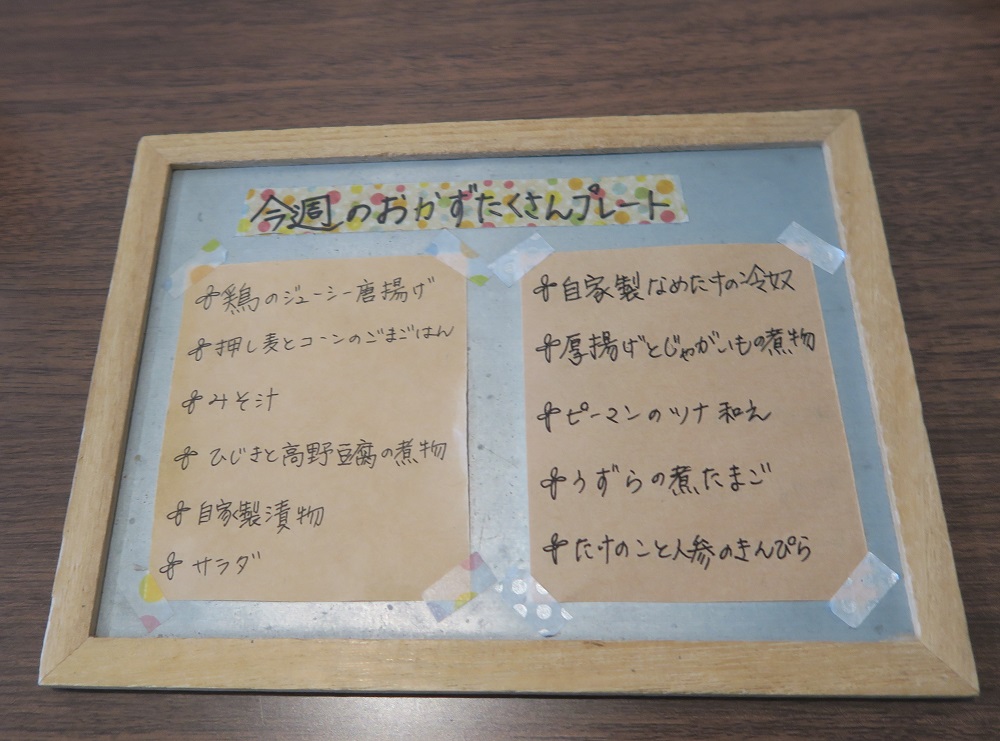 今週のおかずたくさんプレート
鶏のジューシー唐揚げ
押し麦とコーンのごまごはん
みそ汁
ひじきと高野豆腐の煮物
自家製漬物
サラダ
自家製なめたけの冷奴
厚揚げとじゃがいもの煮物
ピーマンのツナ和え
うずらの煮たまご
たけのこと人参のきんぴら